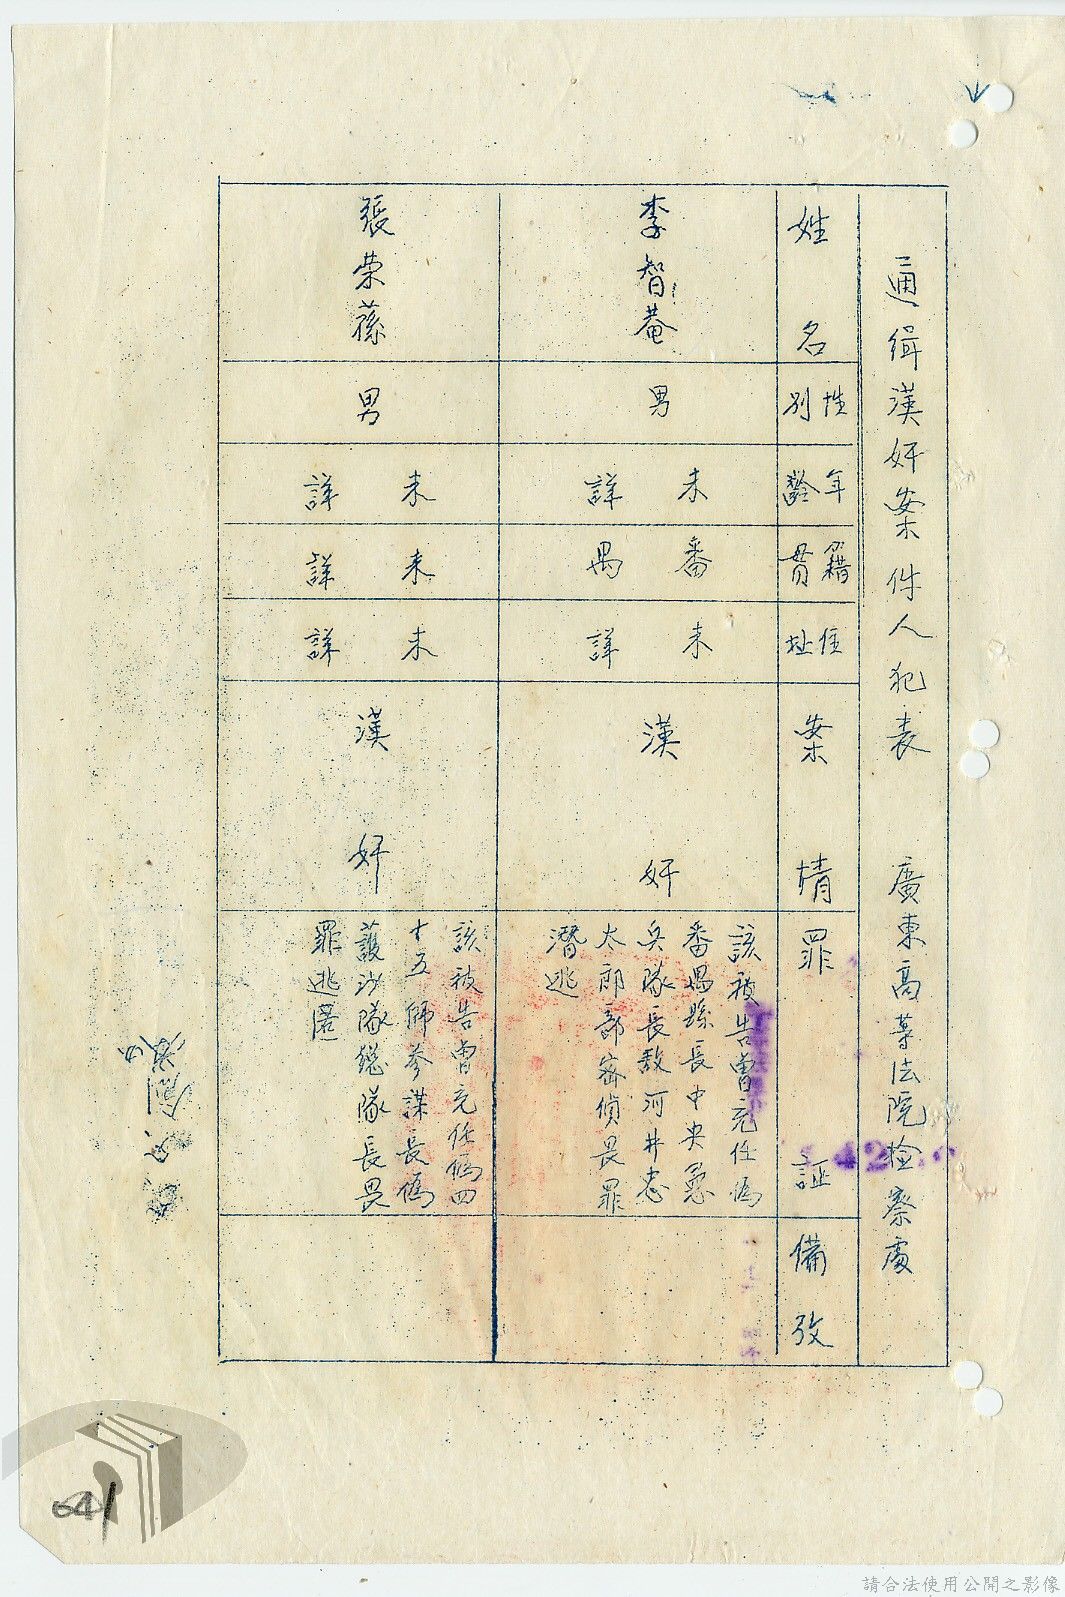 通緝漢奸案件人犯表 廣東高等法院檢察處
姓名
性別
年齡
籍貫
住址
案情
罪証
備攷
李智菴
男
未詳
番禺
未詳
漢奸
該被告曾充任偽
番禺縣長中央憲
兵隊長敖河井忠
太郎部密偵畏罪
潛逃
張荣蓀
男
未詳
未詳
未詳
漢奸
該被告曾充任偽四
十五師參謀長偽
護沙隊總隊長畏
罪逃匿
42
641
請合法使用公開之影像